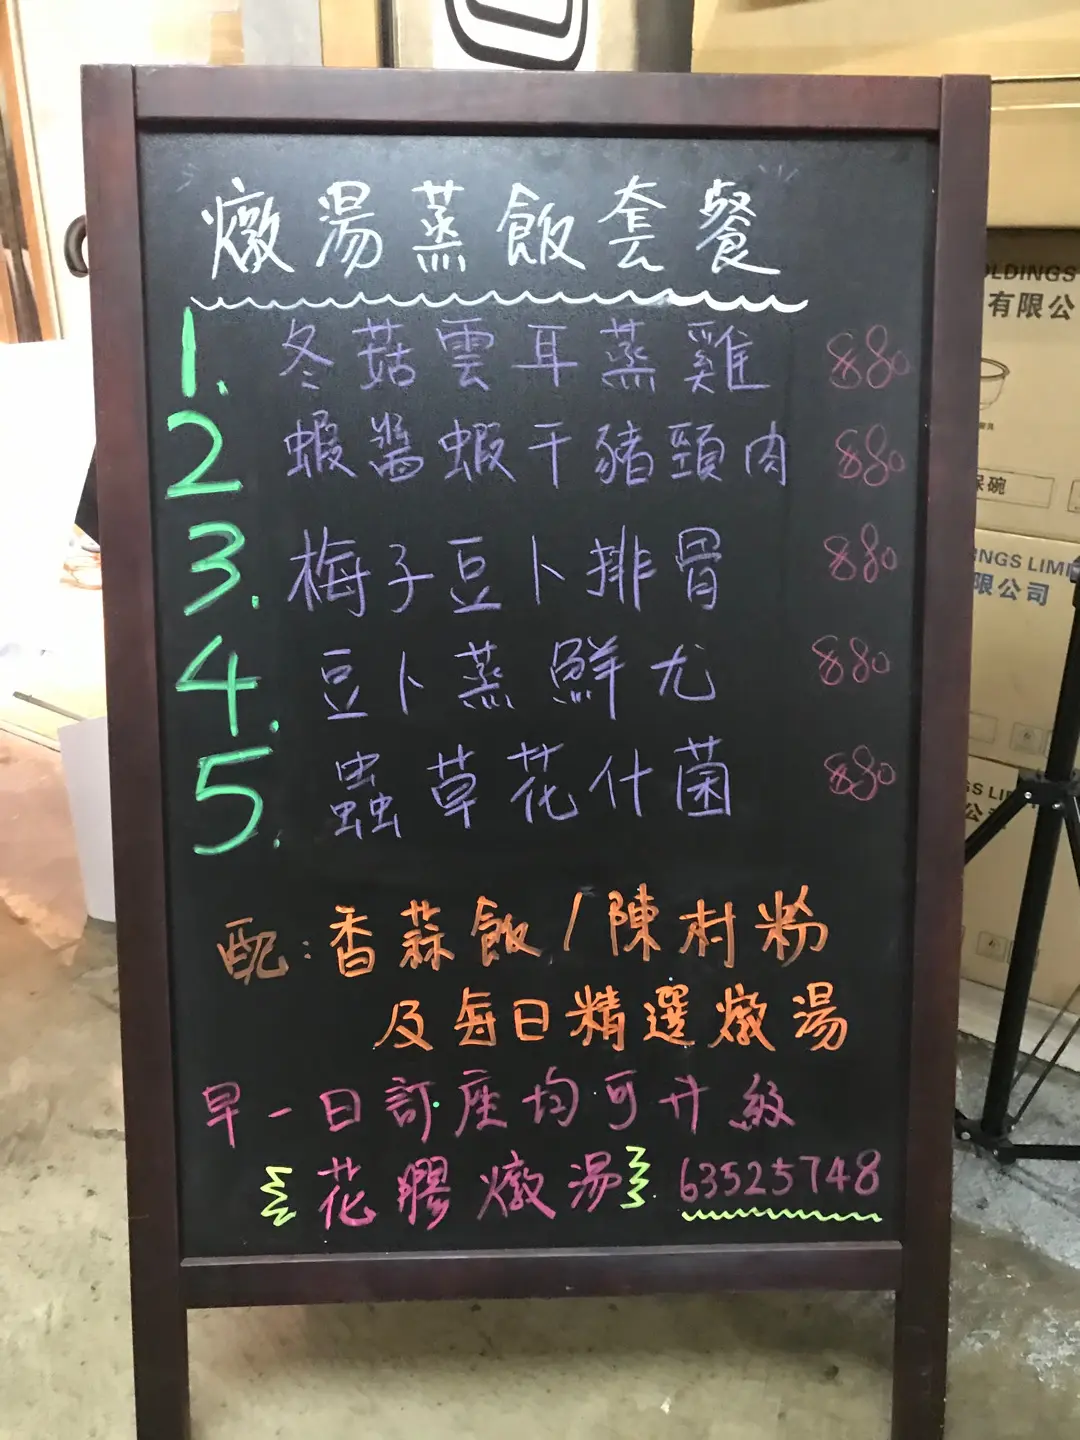 燉湯蒸飯套餐
1. 冬菇雲耳蒸雞 $80
2 蝦醬蝦干豬頸肉 $80
3. 梅子豆卜排骨 $80
4. 豆卜蒸鮮尤 $80
5. 蟲草花什菌 $80
配:香蒜飯/陳村粉
及每日精選燉湯
早一日訂座均可升級
花膠燉湯 63525748
OLDINGS
有限公
保碗
INGS LIMI
限公司
GS LI
公